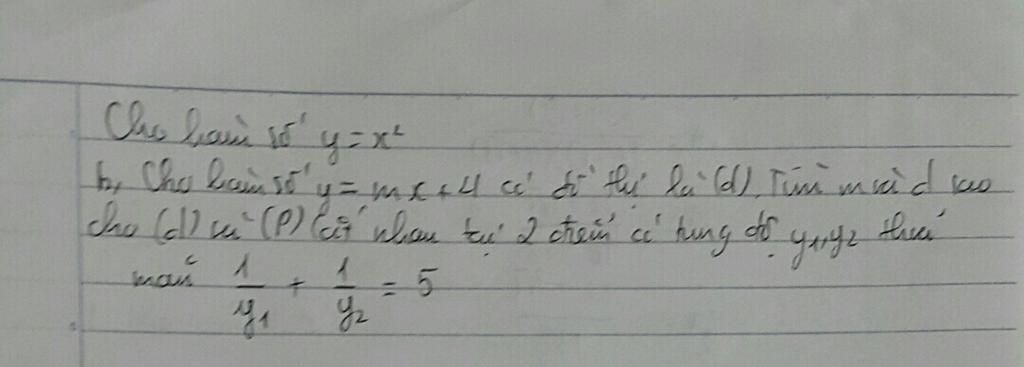 Cho hàm số y = x²
b, Cho hàm số y = mx + 4 có đồ thị là (d). Tìm m và d sao
cho (d) và (P) cắt nhau tại 2 điểm có tung độ y₁, y₂ thoả
mãn 1/y₁ + 1/y₂ = 5